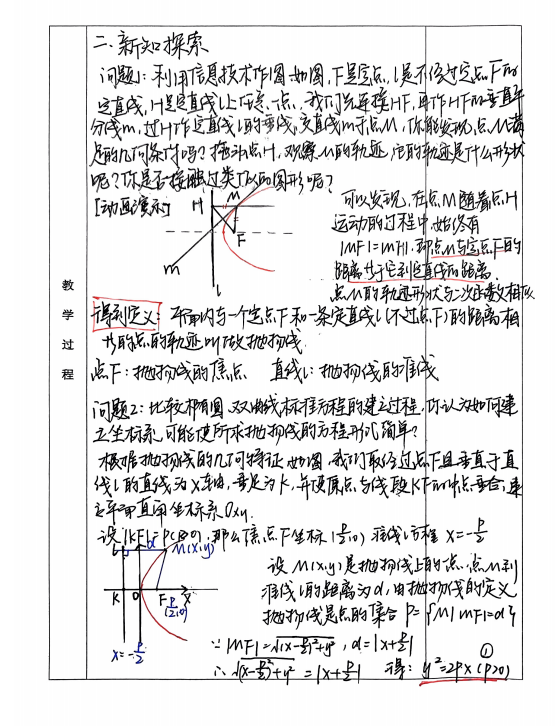 二、新知探索
问题1：利用信息技术作图,如图,F是定点,l是不经过定点F的
定直线,H是定直线l上任意一点,我们先连接HF,再作HF的垂直平
分线m,过H作定直线l的垂线,交直线m于点M,你能发现点M满
足的几何条件吗？拖动点H,观察M的轨迹,它的轨迹是什么形状
呢？你是否接触过类似的图形呢？
[动画演示]
H
M
F
m
l
可以发现,在点M随着点H
运动的过程中,始终有
|MF|=|MH|,即点M与定点F的
距离等于它到定直线的距离.
点M的轨迹形状与二次函数相似
教学过程
得到定义：平面内与一个定点F和一条定直线l(不过点F)的距离相
等的点的轨迹叫做抛物线.
点F:抛物线的焦点 直线l:抛物线的准线
问题2:比较椭圆、双曲线标准方程的建立过程,你认为如何建
立坐标系,可能使所求抛物线的方程形式简单?
根据抛物线的几何特征,如图,我们取经过点F且垂直于直
线l的直线为x轴,垂足为K,并使原点与线段KF的中点重合,建
立平面直角坐标系Oxy.
设|KF|=P(P>0),那么焦点F坐标(P/2,0) 准线l方程 x=-P/2
d
M(x,y)
K
O
F(P/2,0)
x
x=-P/2
设M(x,y)是抛物线上的一点,点M到
准线l的距离为d,由抛物线的定义
抛物线是点的集合P={M||MF|=d}
∵|MF|=√(x-P/2)²+y²,d=|x+P/2|
∴√(x-P/2)²+y²=|x+P/2| 得: y²=2Px(P>0) ①